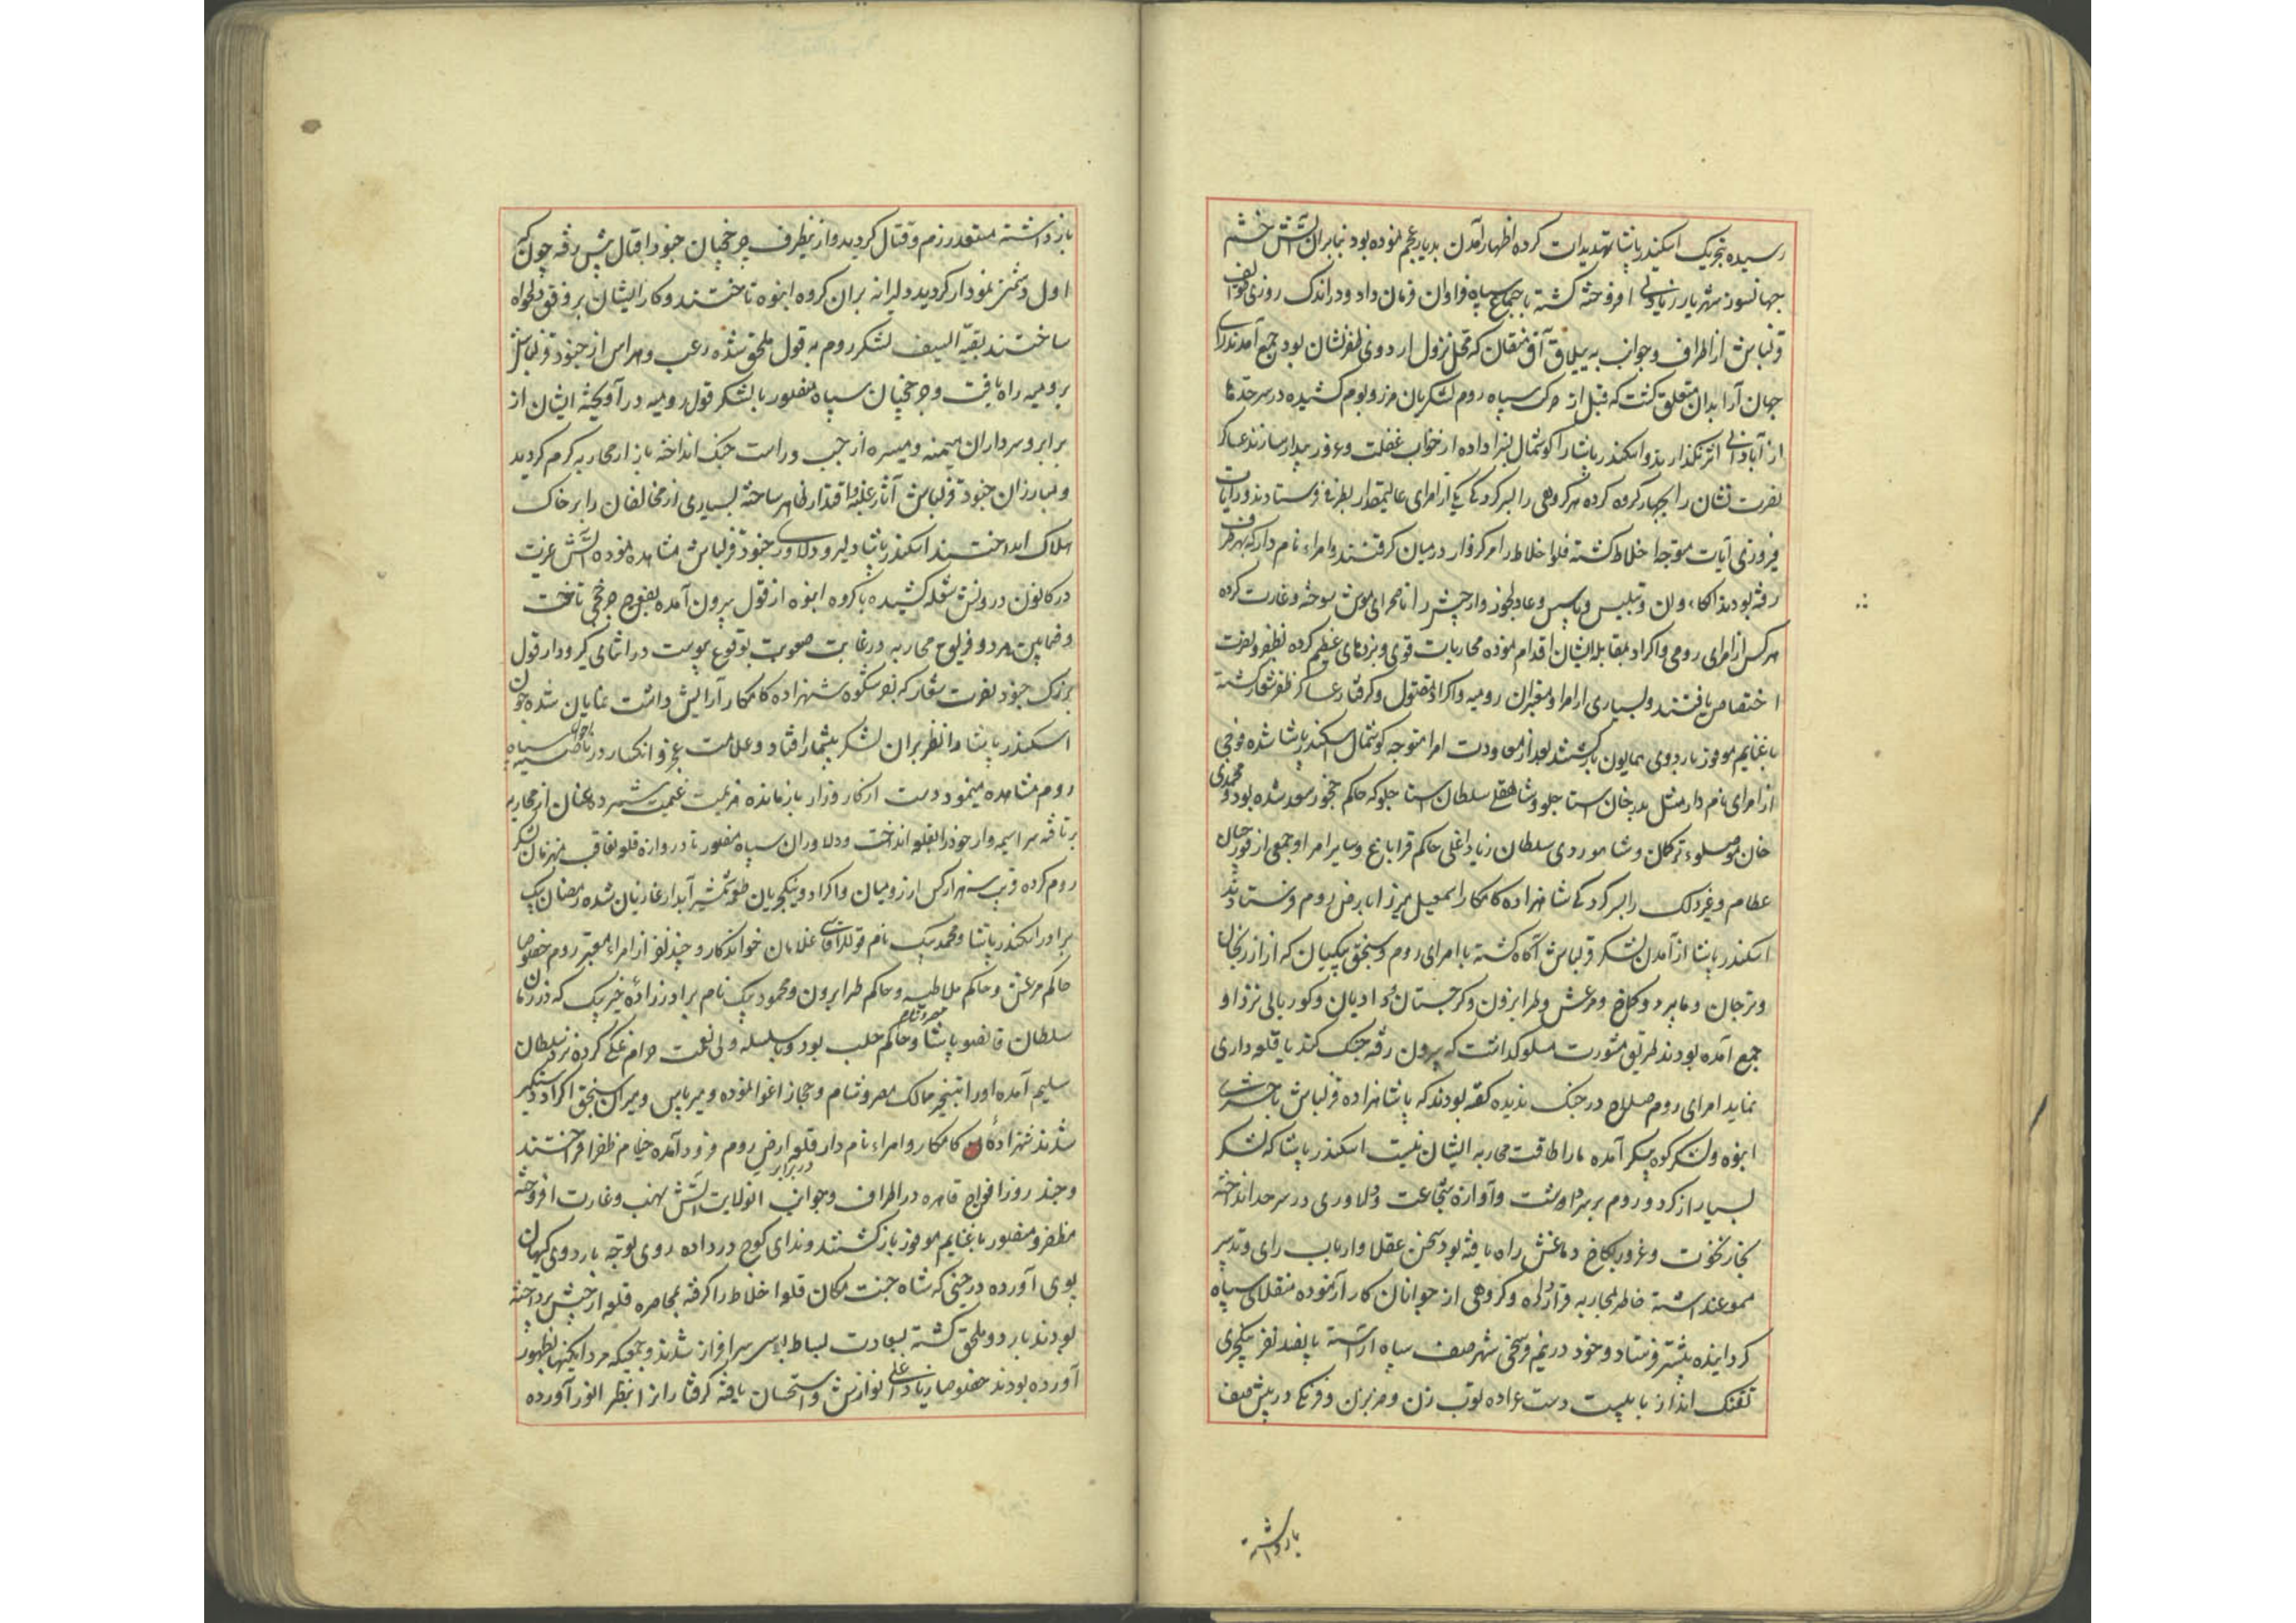 رسیده بتحریک اسکندر پاشا تهدیدات کرده اظهار آمدن بدیار عجم نموده بود بنابران آتش خشم
جهانسوز شهریار ربانی افروخته کشته باجتماع سپاه فراوان فرمان داد و در اندک روزی طوایف
قزلباش از اطراف و جوانب به ییلاق آق منقان که محل نزول اردوی ظفرنشان بود جمع آمدند رای
جهان آرا بدان متعلق کشت که قبل از حرکت سپاه روم لشکر بان مرز و بوم کشیده در سرحدها
از آبادانی اثر نکذارند و اسکندر پاشا را کوشمال بسزا داده از خواب غفلت و غرور بیدار سازند عساکر
نصرت نشان را بچهار کروه کرده هر کروهی را بسرکردکی یکی از امرای عالیمقدار بطرفی فرستادند و رایات
فیروزی آیات متوجه اخلاط کشته قلعه اخلاط را مرکزوار در میان کرفتند و امراء نام دار که بهر طرف
رفته بودند اکثر وان و تبلیس و پاسین و عادلجوز و ارجیش را تا صحرای موش سوخته و غارت کرده
هر کس از امرای رومی و اکراد بمقابله ایشان اقدام نموده محاربات قوی و نبردهای عظیم کرده بظفر و نصرت
اختصاص یافتند و بسیاری از امرا و معتبران رومیه و اکراد مقتول و کرفتار عساکر ظفرشعار کشته
با غنایم موفور باردوی همایون باز کشتند بعد از معاودت امرا متوجه کوشمال اسکندر پاشا شده فوجی
از امرای نام دار مثل بدر خان استاجلو و شاهقلی سلطان استاجلو که حاکم چخور سعد شده بود و محمدی
خان موصلوء ترکمان و شاهوردی سلطان زیاد اغلی حاکم قراباغ و سایر امرا و جمعی از قورچیان
عظام و غیر ذلک را بسرکردکی شاهزاده کامکار اسمعیل میرزا بارض روم فرستادند
اسکندر پاشا از آمدن لشکر قزلباش آکاه کشته با امرای روم و سنجق بیکیان که از ارزنجان
و ترجان و بایبرد و کماخ و مرعش و طرابزون و کرجستان دادیان و کوریالی نزد او
جمع آمده بودند طریق مشورت مسلوکداشت که بیرون رفته جنک کند یا قلعه داری
نماید امرای روم صلاح در جنک ندیده کفته بودند که پاشاهزاده قزلباش با حشری
انبوه و لشکر کوه پیکر آمده ما را طاقت محاربه ایشان نیست اسکندر پاشا که لشکر
بسیار از کرد و روم بر سر داشت و آوازه شجاعت و دلاوری در سرحد انداخته
بخار نخوت و غرور بکاخ دماغش راه یافته بود سخن عقلا و ارباب رای و تدبیر
مسموع نداشته خاطر بمحاربه قرار داد و کروهی از جوانان کار آزموده منقلای سپاه
کردانیده پیشتر فرستاد و خود در نیم فرسخی شهر صف سپاه آراسته پانصد نفر ینکچری
تفنک انداز با بیست دست عراده توب زن و ضربزن و فرنکی در پیش صف
بازداشته
بازداشته مستعد رزم و قتال کردید و از ینطرف چرخچیان جنود اقبال پیش رفته چون
اول دشمن نمودار کردید دلیرانه بران کروه انبوه تاختند و کار ایشان بر وفق دلخواه
ساختند بقیة السیف لشکر روم به قول ملحق شده رعب و هراس از جنود قزلباش
برومیه راه یافت و چرخچیان سپاه منصور با لشکر قول رومیه درآویخته ایشان از
برابر و سرداران میمنه و میسره از چپ و راست جنک انداخته بازار محاربه کرم کردید
و مبارزان جنود قزلباش آثار غلبه و اقتدار ظاهر ساخته بسیاری از مخالفان را بر خاک
هلاک انداختند اسکندر پاشا دلیری و دلاوری جنود قزلباش مشاهده نموده آتش غیرت
در کانون درونش شعله کشیده با کروه انبوه از قول بیرون آمده بفوج چرخچی تاخت
و فیمابین هر دو فریق محاربه در غایت صعوبت بوقوع پیوست در اثنای کیرودار قول
بزرک جنود نصرت شعار که بفر شکوه شهزاده کامکار آرایش داشت نمایان شده چون
اسکندر پاشا را نظر بران لشکر بیشمار افتاد و علامت عجز و انکسار در ناصیه احوال سپاه
روم مشاهده مینمود دست از کارزار بازمانده هزیمت غنیمت شمرده عنان از محاربه
برتافته سراسیمه وار خود را بقلعه انداخت و دلاوران سپاه منصور تا دروازه قلعه تعاقب منهزمان لشکر
روم کرده قریب سه هزار کس از رومیان و اکراد و ینکچریان طعمه شمشیر آبدار غازیان شده رمضان بیک
برادر اسکندر پاشا و محمد بیک نام قوللر آقاسی غلامان خواندکار و چند نفر از امراء معتبر روم خصوصا
حاکم مرعش و حاکم ملاطیه و حاکم طرابزون و محمود بیک نام برادرزاده خیر بیک که در زمان
سلطان قانصو پاشاه مصر و شام حاکم حلب بود و با سلسله ولی نعمت حرام نمکی کرده نزد سلطان
سلیم آمده او را بتسخیر ممالک مصر و شام و حجاز اغوا نموده و میر پاس و میران سنجق اکراد دستکیر
شدند شهزادهٔ کامکار و امراء نام دار در برابر قلعه ارض روم فرود آمده خیام ظفر افراختند
و چند روز افواج قاهره در اطراف و جوانب انولایت آتش نهب و غارت افروخته
مظفر و منصور با غنایم موفور باز کشتند و ندای کوچ در داده روی توجه باردوی کیهان
پوی آورده در حینی که شاه جنت مکان قلعه اخلاط را کرفته بمحاصره قلعه ارجیش پرداخته
بودند باردو ملحق کشته بسعادت بساط بوسی سرافراز شدند و جمعیکه مردانکیها بظهور
آورده بودند خصوصا زیاد اغلی نوازش و استحسان یافته کرفتاران را بنظر انور آورده